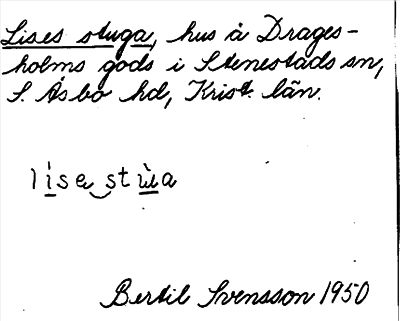 Lises stuga, hus å Drages-
holms gods i Stenestads sn,
S. Åsbo hd, Krist. län.
lísestùa
Bertil Svensson 1950